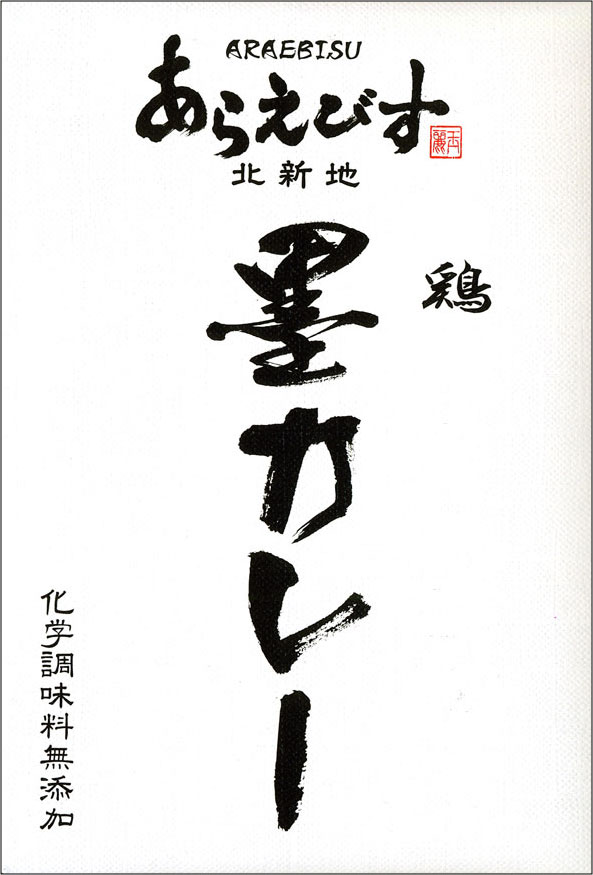 ARAEBISU
あらえびす
北新地
鶏
墨カレー
化学調味料無添加